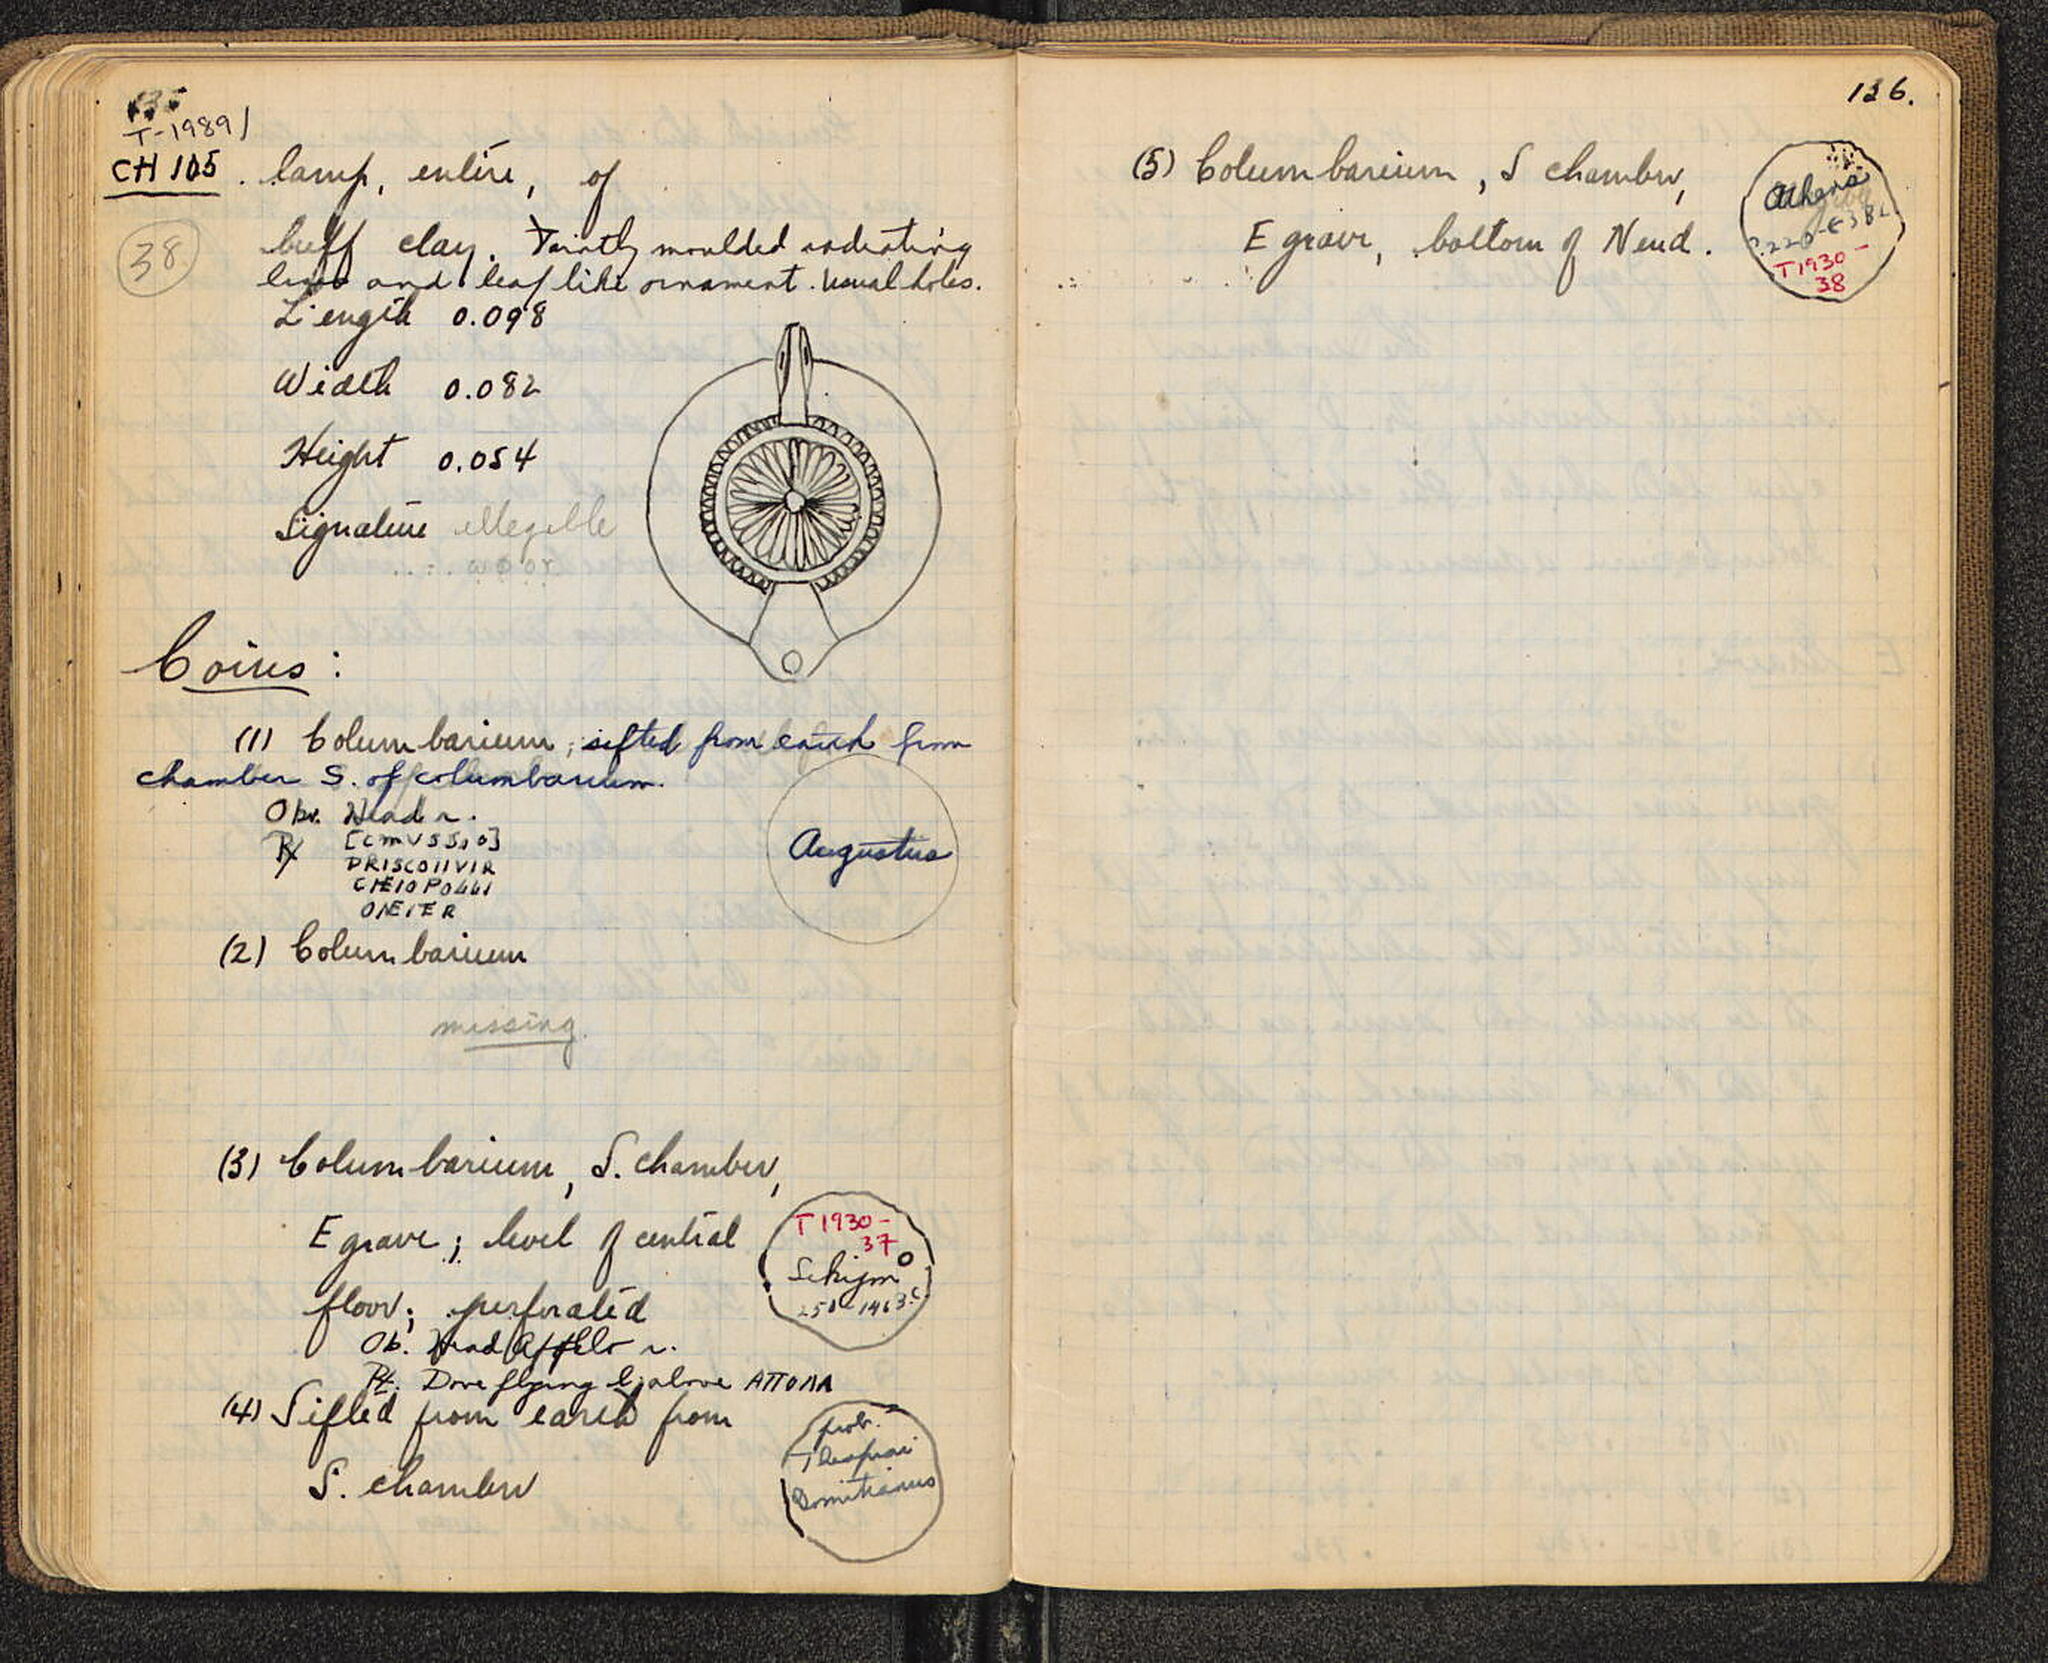 135
T-1989
CH 105. lamp, entire, of
38.
buff clay. Faintly moulded radiating
lines and leaf like ornament. Usual holes.
Length 0.098
Width 0.082
Height 0.054
Signature illegible
Coins:
(1) Columbarium; sifted from earth from
chamber S. of columbarium.
Augustus
Obv. Head r.
[CMVSSIO]
PRISCOIIVIR
(2) Columbarium
missing.
(3) Columbarium, S. chamber,
E grave; level of central
floor; perforated
T 1930-
37
Ob. Head Apollo r.
Rx. Dove flying l; above
(4) Sifted from earth from
S. chamber
prob.
Domitianus
136.
(5) Columbarium, S chamber,
E grave, bottom of N end.
Athens
T 1930-
38